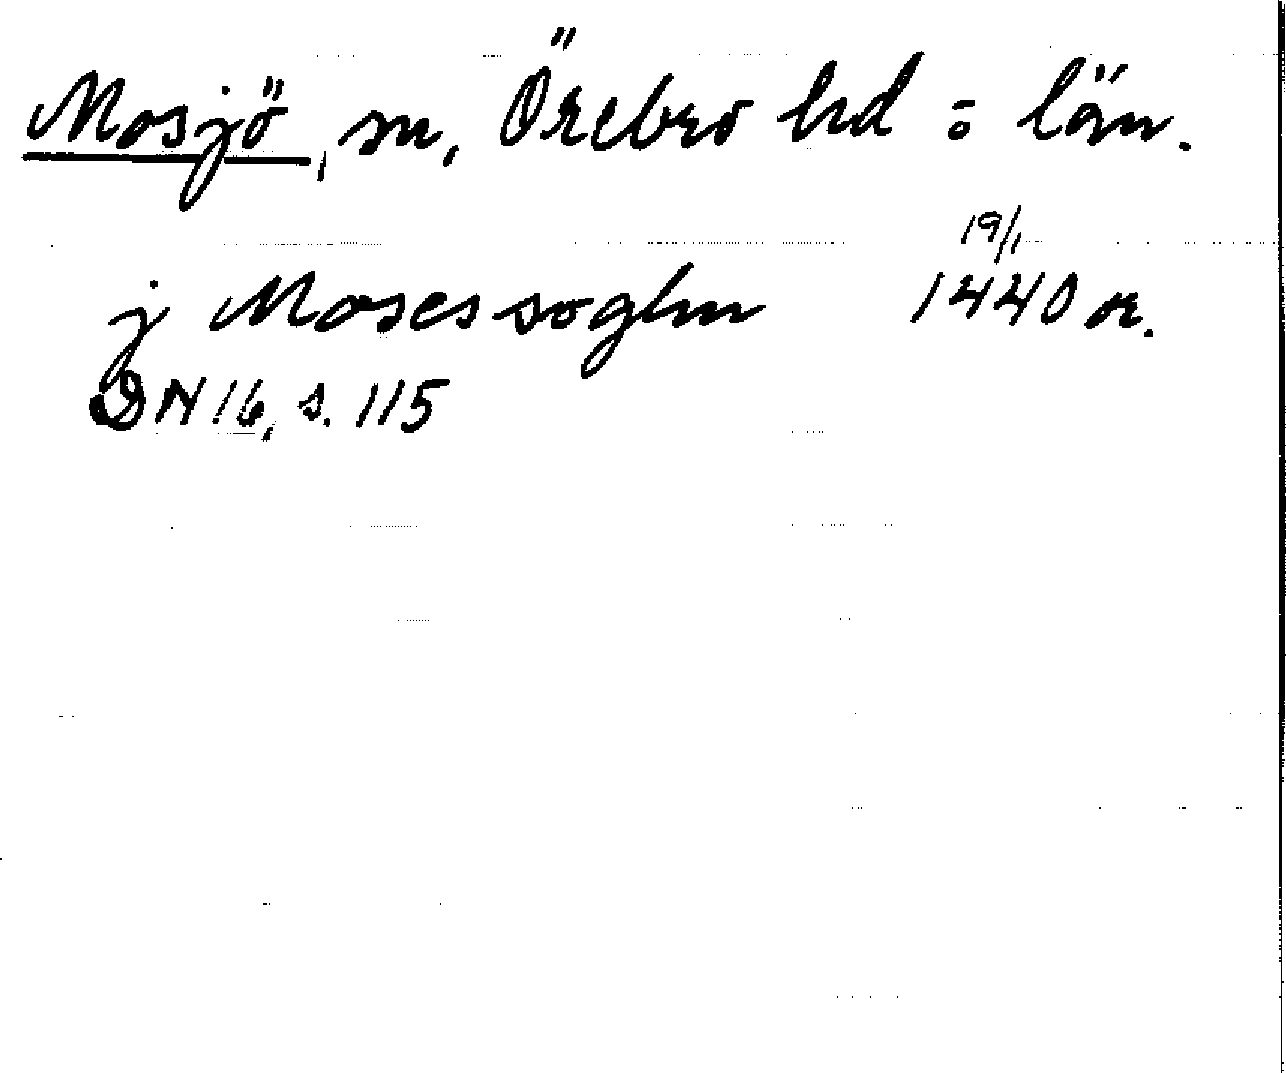 Mosjö, sn, Örebro hd o län.
j Moses soghn 19/1 1440 or.
DN 16, s. 115